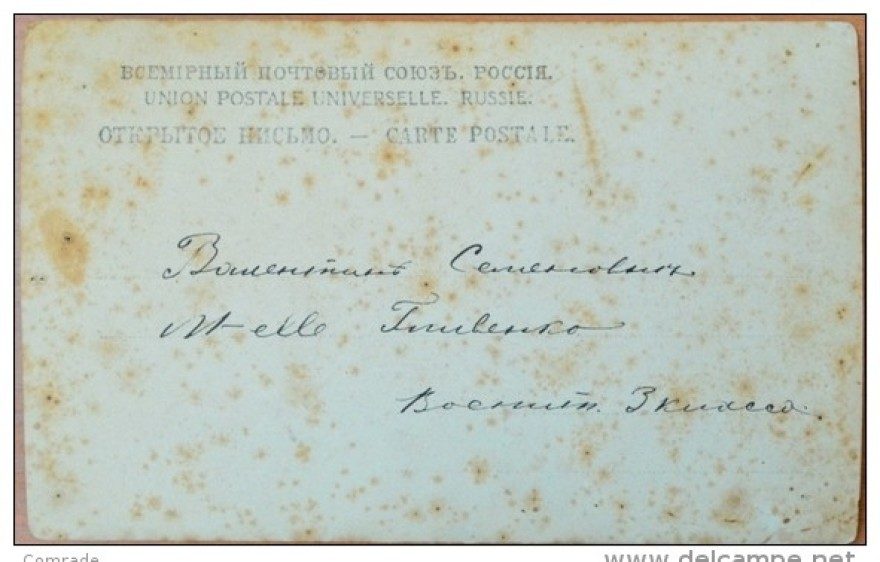 ВСЕМІРНЫЙ ПОЧТОВЫЙ СОЮЗЪ. РОССІЯ.
UNION POSTALE UNIVERSELLE. RUSSIE.
ОТКРЫТОЕ ПИСЬМО. — CARTE POSTALE.
Валентинъ Семеновичъ
M-elle
Воспит. 3 класса.
Comrade
www.delcampe.net